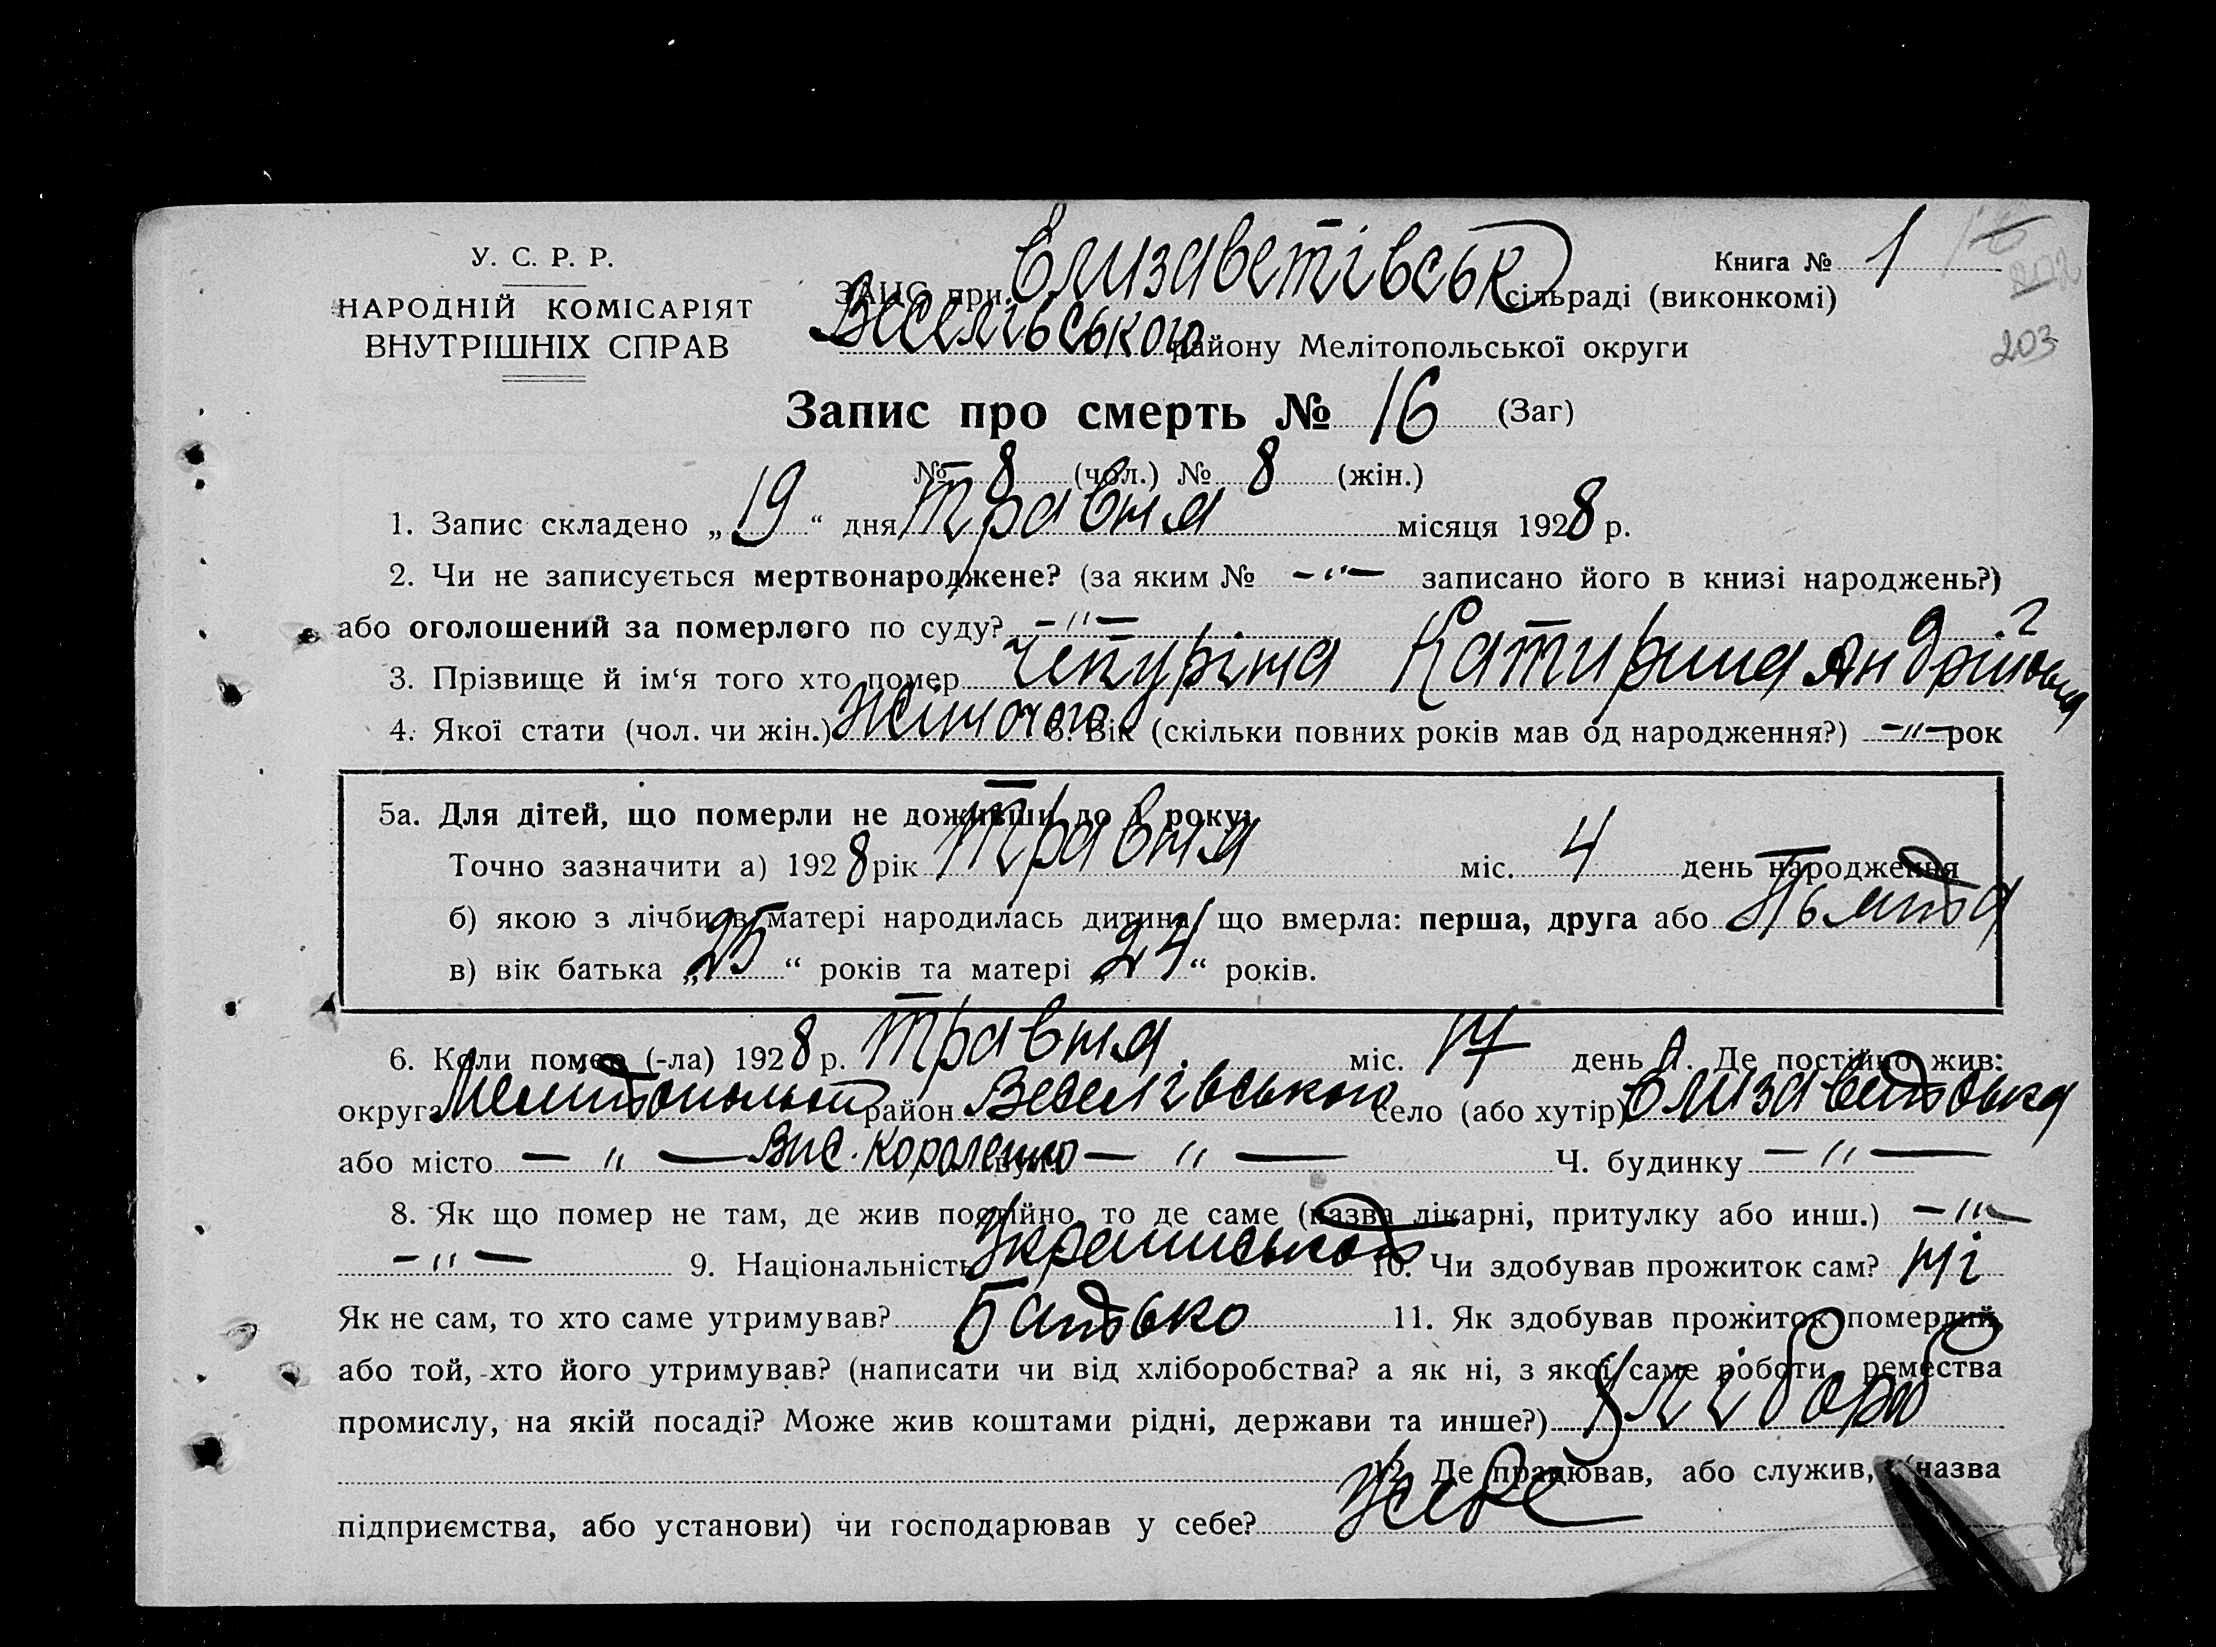 У. С. Р. Р.
НАРОДНІЙ КОМІСАРІЯТ
ВНУТРІШНІХ СПРАВ
Книга № 1
203
ЗАГС при Єлизаветівськ сільраді (виконкомі)
Веселівського району Мелітопольської округи
Запис про смерть № 16 (Заг)
№ 8 (чол.) № 8 (жін.)
1. Запис складено „19“ дня травня місяця 1928 р.
2. Чи не записується мертвонароджене? (за яким № -"- записано його в книзі народжень?)
або оголошений за померлого по суду? -"-
3. Прізвище й ім‘я того хто помер Чепуріна Катирина Андріївна
4. Якої стати (чол. чи жін.) жіночого 5. Вік (скільки повних років мав од народження?) -"- рок
5а. Для дітей, що померли не доживши до 1 року:
Точно зазначити а) 1928 рік травня міс. 4 день народження
б) якою з лічби в матері народилась дитина, що вмерла: перша, друга або
в) вік батька „25“ років та матері „24“ років.
6. Коли помер (-ла) 1928 р. травня міс. 17 день 7. Де постійно жив:
округа район Веселівського село (або хутір)
або місто — " — Вис. Короленко вул. — " — Ч. будинку — " —
8. Як що помер не там, де жив постійно, то де саме (назва лікарні, притулку або инш.) -"-
-"- 9. Національність 10. Чи здобував прожиток сам? ні
Як не сам, то хто саме утримував? Батько 11. Як здобував прожиток померлий,
або той, хто його утримував? (написати чи від хліборобства? а як ні, з якої саме роботи, ремества
промислу, на якій посаді? Може жив коштами рідні, держави та инше?) хлібороб
12. Де працював, або служив, (назва
підприємства, або установи) чи господарював у себе? у себе